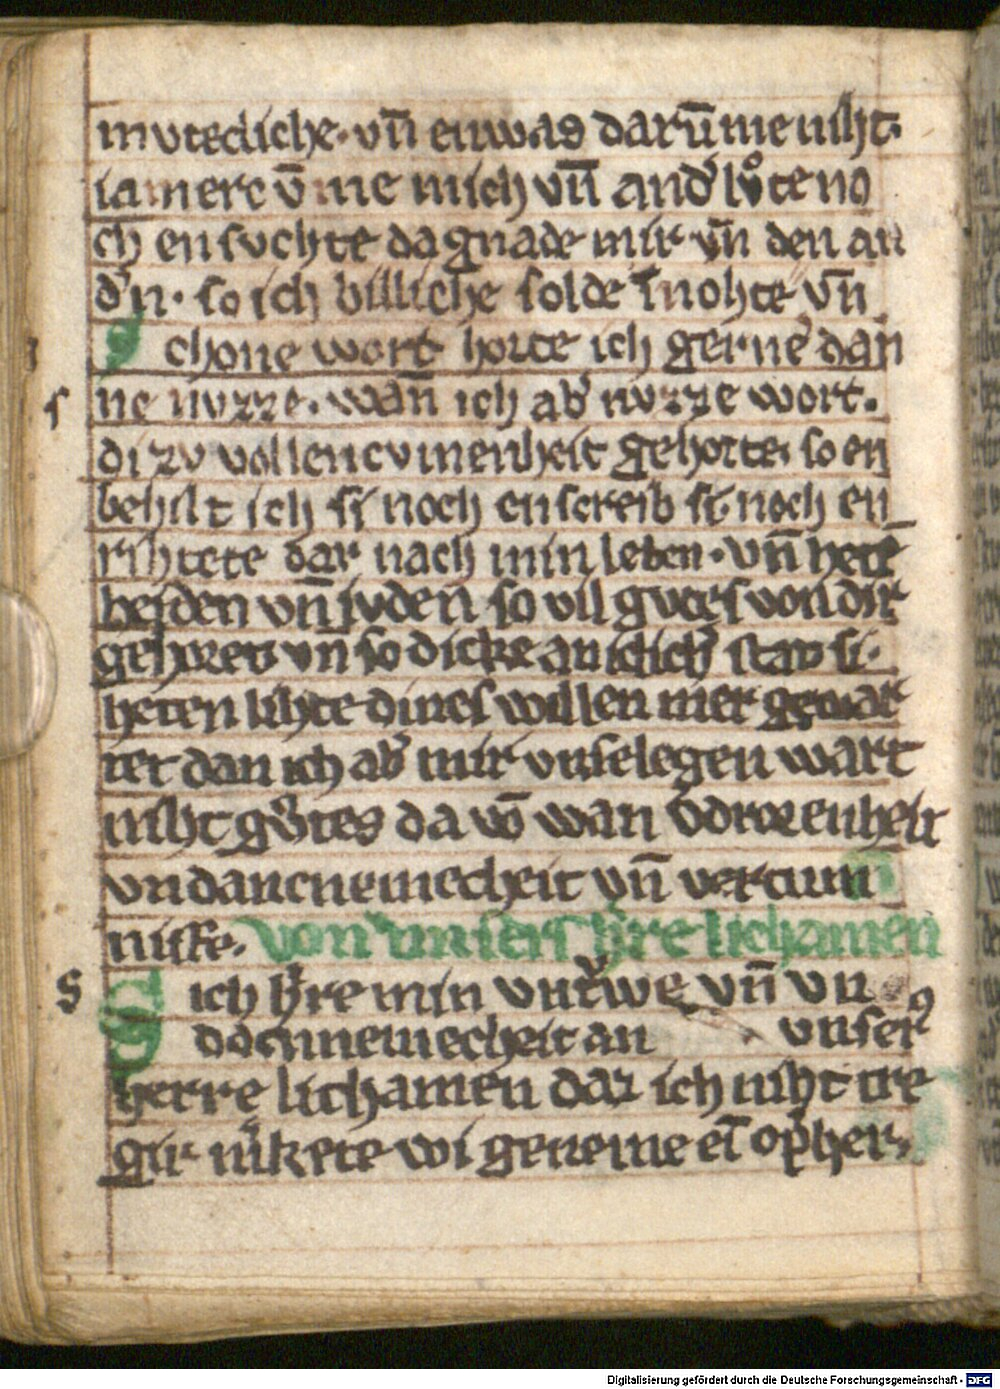 mvtecliche· vn̄ enwas darū me niht·
iamerc v̄ me mich vn̄ and͛ lv̊te no
ch en svchte da gnade mir vn̄ den an
d͛n· so ich billiche solde ī nohte vn̄
chone wort horte ich gerne dan
ne nvzze· wan̄ ich ab͛ nvzze wort·
di zv vollencvmenheit gehorte so en
behilt ich si noch en screib si· noch en
rihtete dar nach min leben· vn̄ hete
heiden vn̄ jvden so vil gvtes von dir
gehoret vn̄ so dicke an dich stat si·
heten lihte dines willen mer gewar
tet dan ich ab͛ mir vnselegen wart
niht gv̊tes da vō wan v͛drozenheit
vndancnemecheit vn̄ vertum
nisse· von vnsers h͛re lichamen
S
s
Sich h͛re min vntrwe vn̄ vn
dacnnemecheit an vnsers
herre lichamen daz ich niht tre
gir m͛kete wi geneme eī opher·
Digitalisierung gefördert durch die Deutsche Forschungsgemeinschaft - DFG